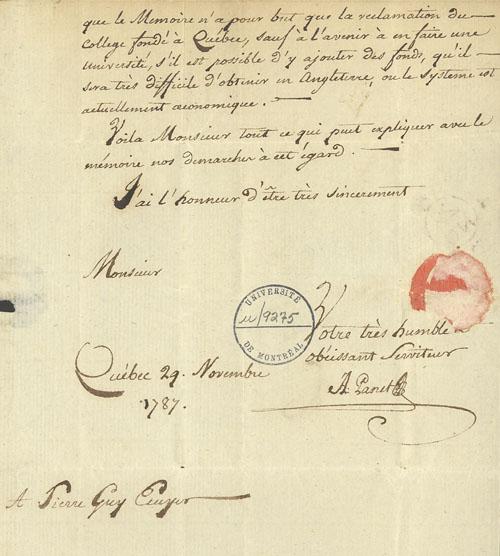 que le Memoire n'a pour but que la reclamation du
College fondé à Québec, sauf à l'avenir à en faire une
université, s'il est possible d'y ajouter des fonds, qu'il
sera très difficile d'obtenir en Angleterre, ou le systeme est
actuellement œconomique.
Voila Monsieur tout ce qui peut expliquer avec le
mémoire nos demarches à cet égard.
J'ai l'honneur d'être très sincerement
Monsieur
UNIVERSITÉ
u/9275
DE MONTRÉAL
Votre très humble
obéissant Serviteur
A Panet
Québec 29. Novembre
1787.
A Pierre Guy Ecuyer